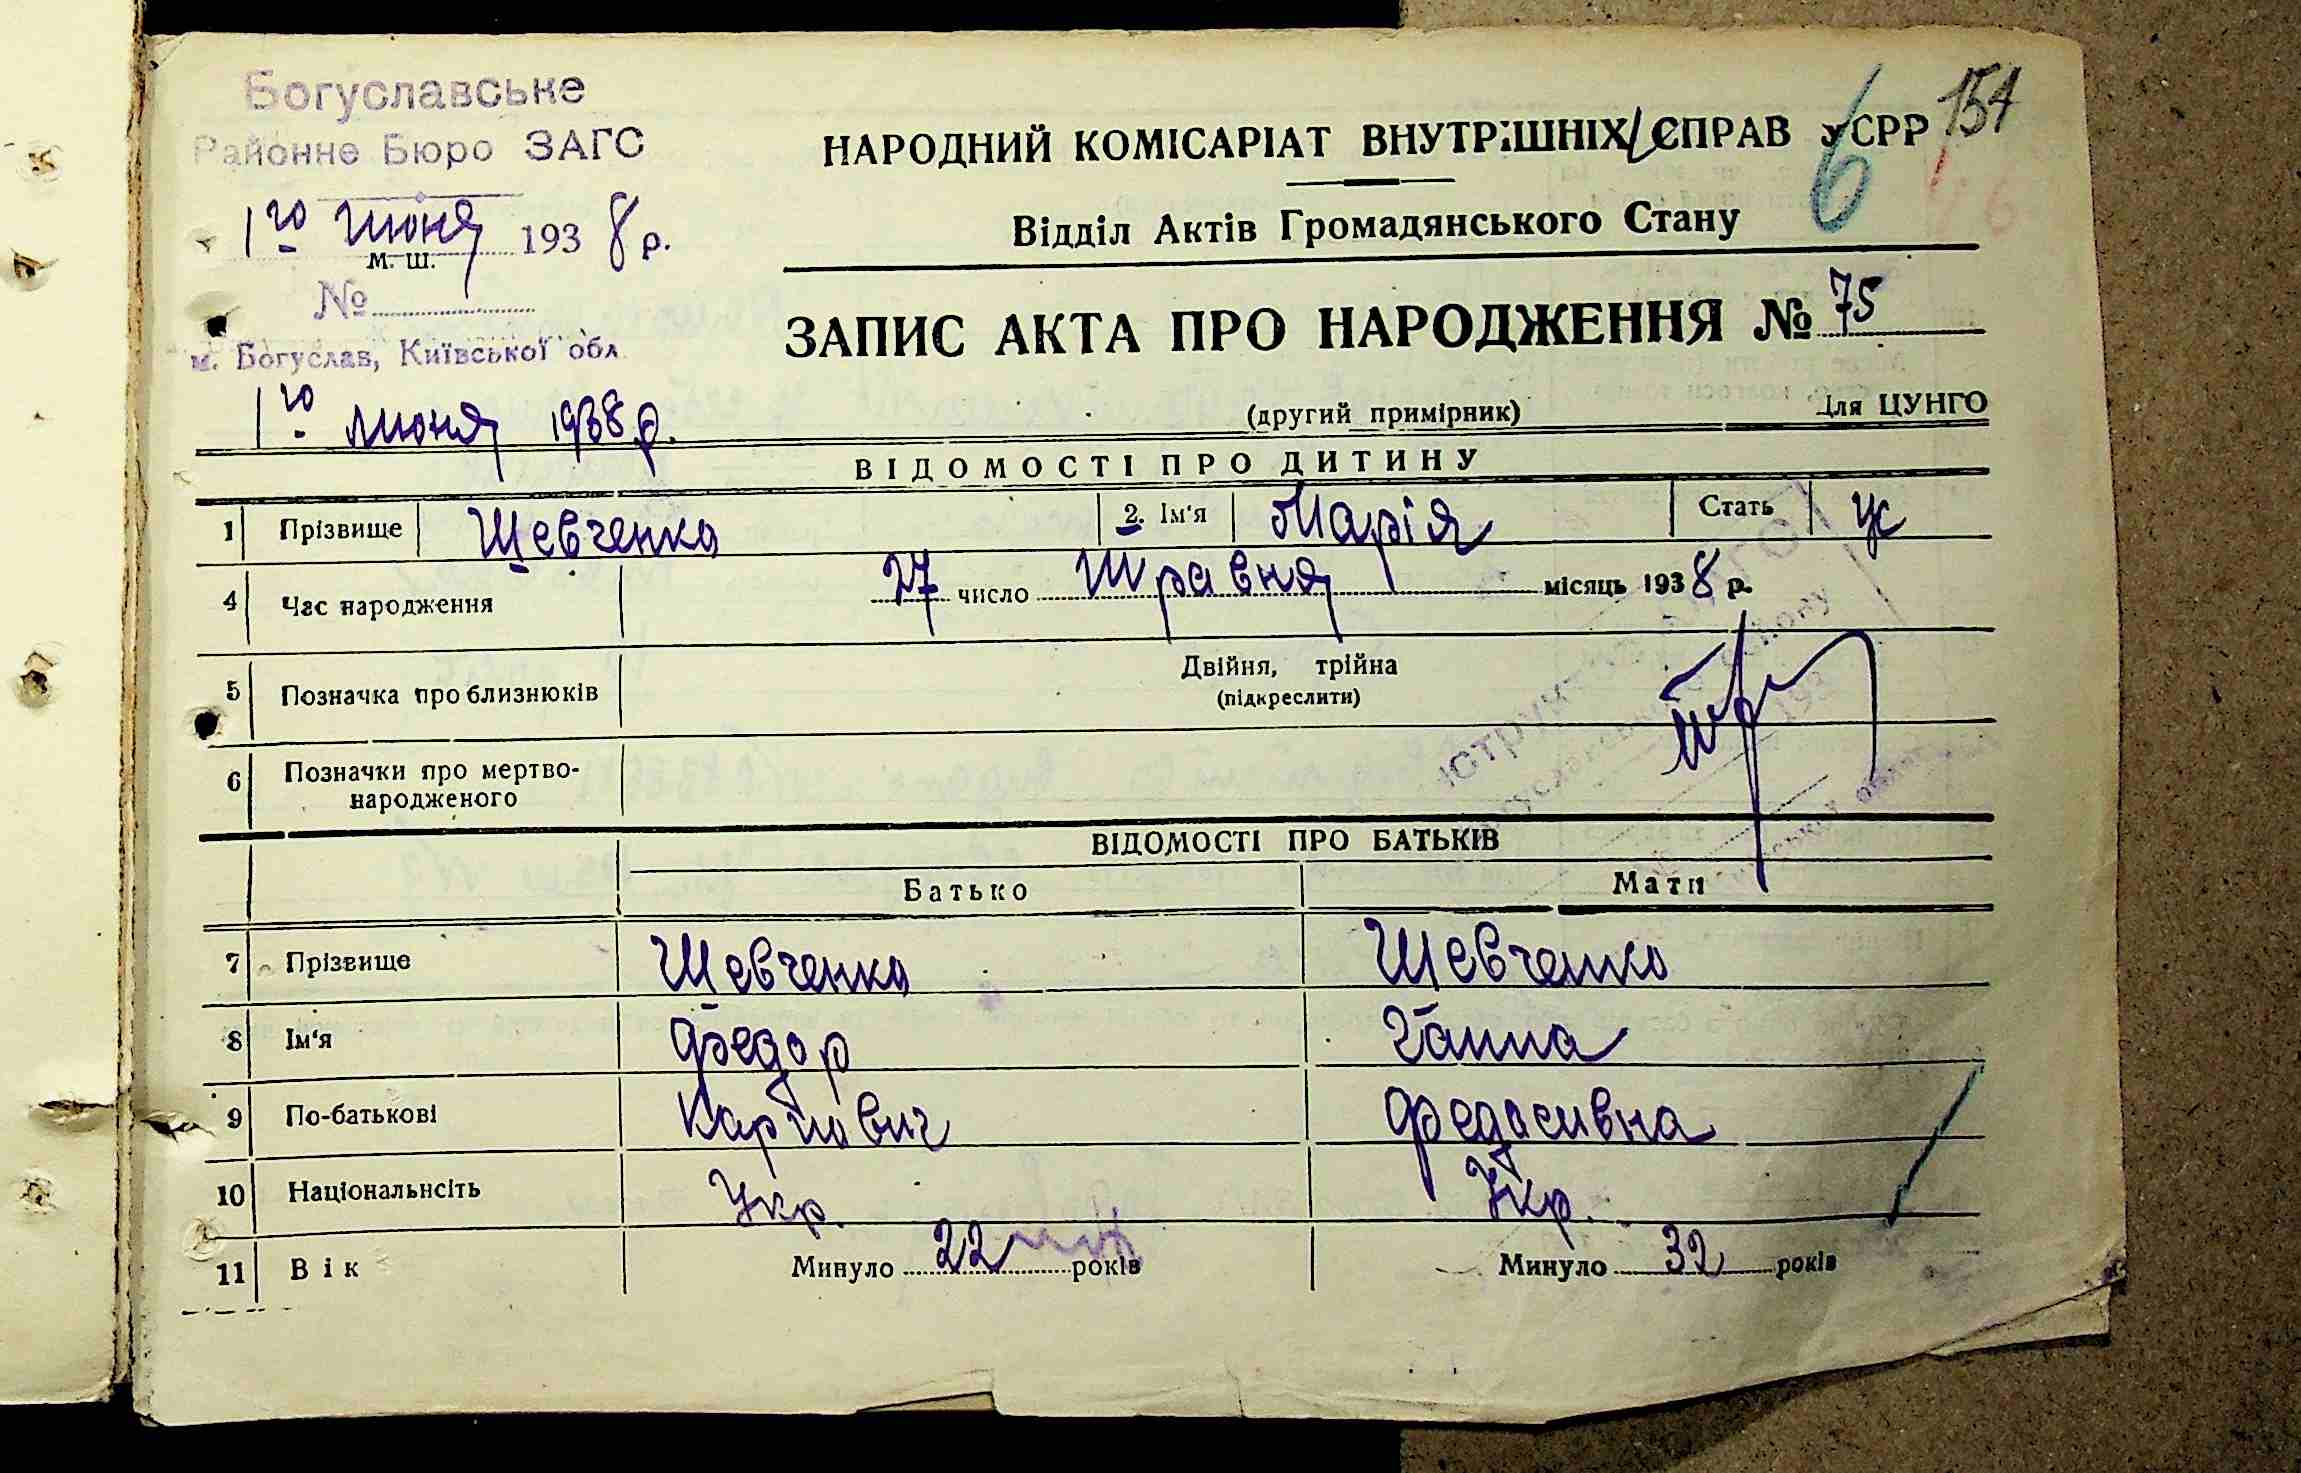 Богуславське
Районне Бюро ЗАГС
1го июня 1938 р.
м. ш.
№
м. Богуслав, Київської обл
1го июня 1938 р.
6 154
НАРОДНИЙ КОМІСАРІАТ ВНУТРІШНІХ СПРАВ УСРР
Відділ Актів Громадянського Стану
ЗАПИС АКТА ПРО НАРОДЖЕННЯ № 75
(другий примірник) Для ЦУНГО
ВІДОМОСТІ ПРО ДИТИНУ
1 Прізвище Шевченко 2. Ім'я Марія Стать ж
4 Час народження 27 число Травня місяць 1938 р.
5 Позначка про близнюків Двійня, трійна
(підкреслити)
6 Позначки про мертво-
народженого
ВІДОМОСТІ ПРО БАТЬКІВ
Батько Мати
7 Прізвище Шевченко Шевченко
8 Ім'я Федор Ганна
9 По-батькові Карпович Федосивна
10 Національнсіть Укр. Укр.
11 Вік Минуло 22 років Минуло 32 років